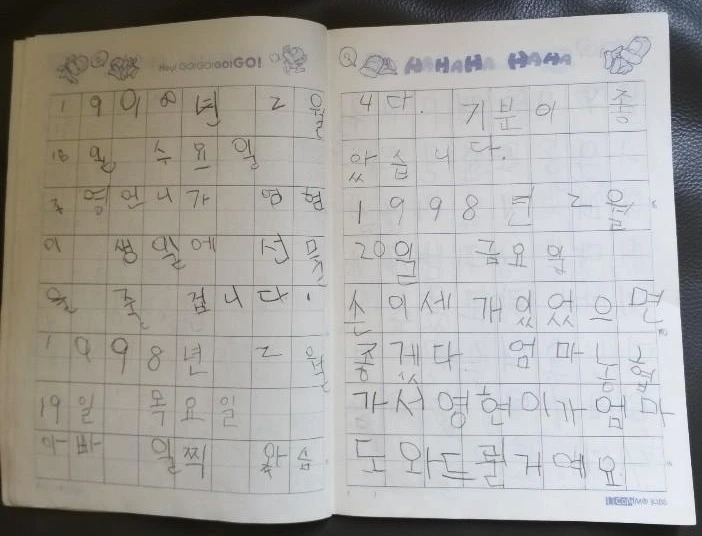 Hey! GO!GO!GO!GO!
1998년 2월
18일 수요일
언니가 영현
이 생일에 선물
을 줄 겁니다.
1998년 2월
19일 목요일
아빠 일찍 왔습
HAHAHA HAHA
니다. 기분이 좋
았습니다.
1998년 2월
20일 금요일
손이세개있었으면
좋겠다 엄마 농협
가서영현이가엄마
도와드릴거예요